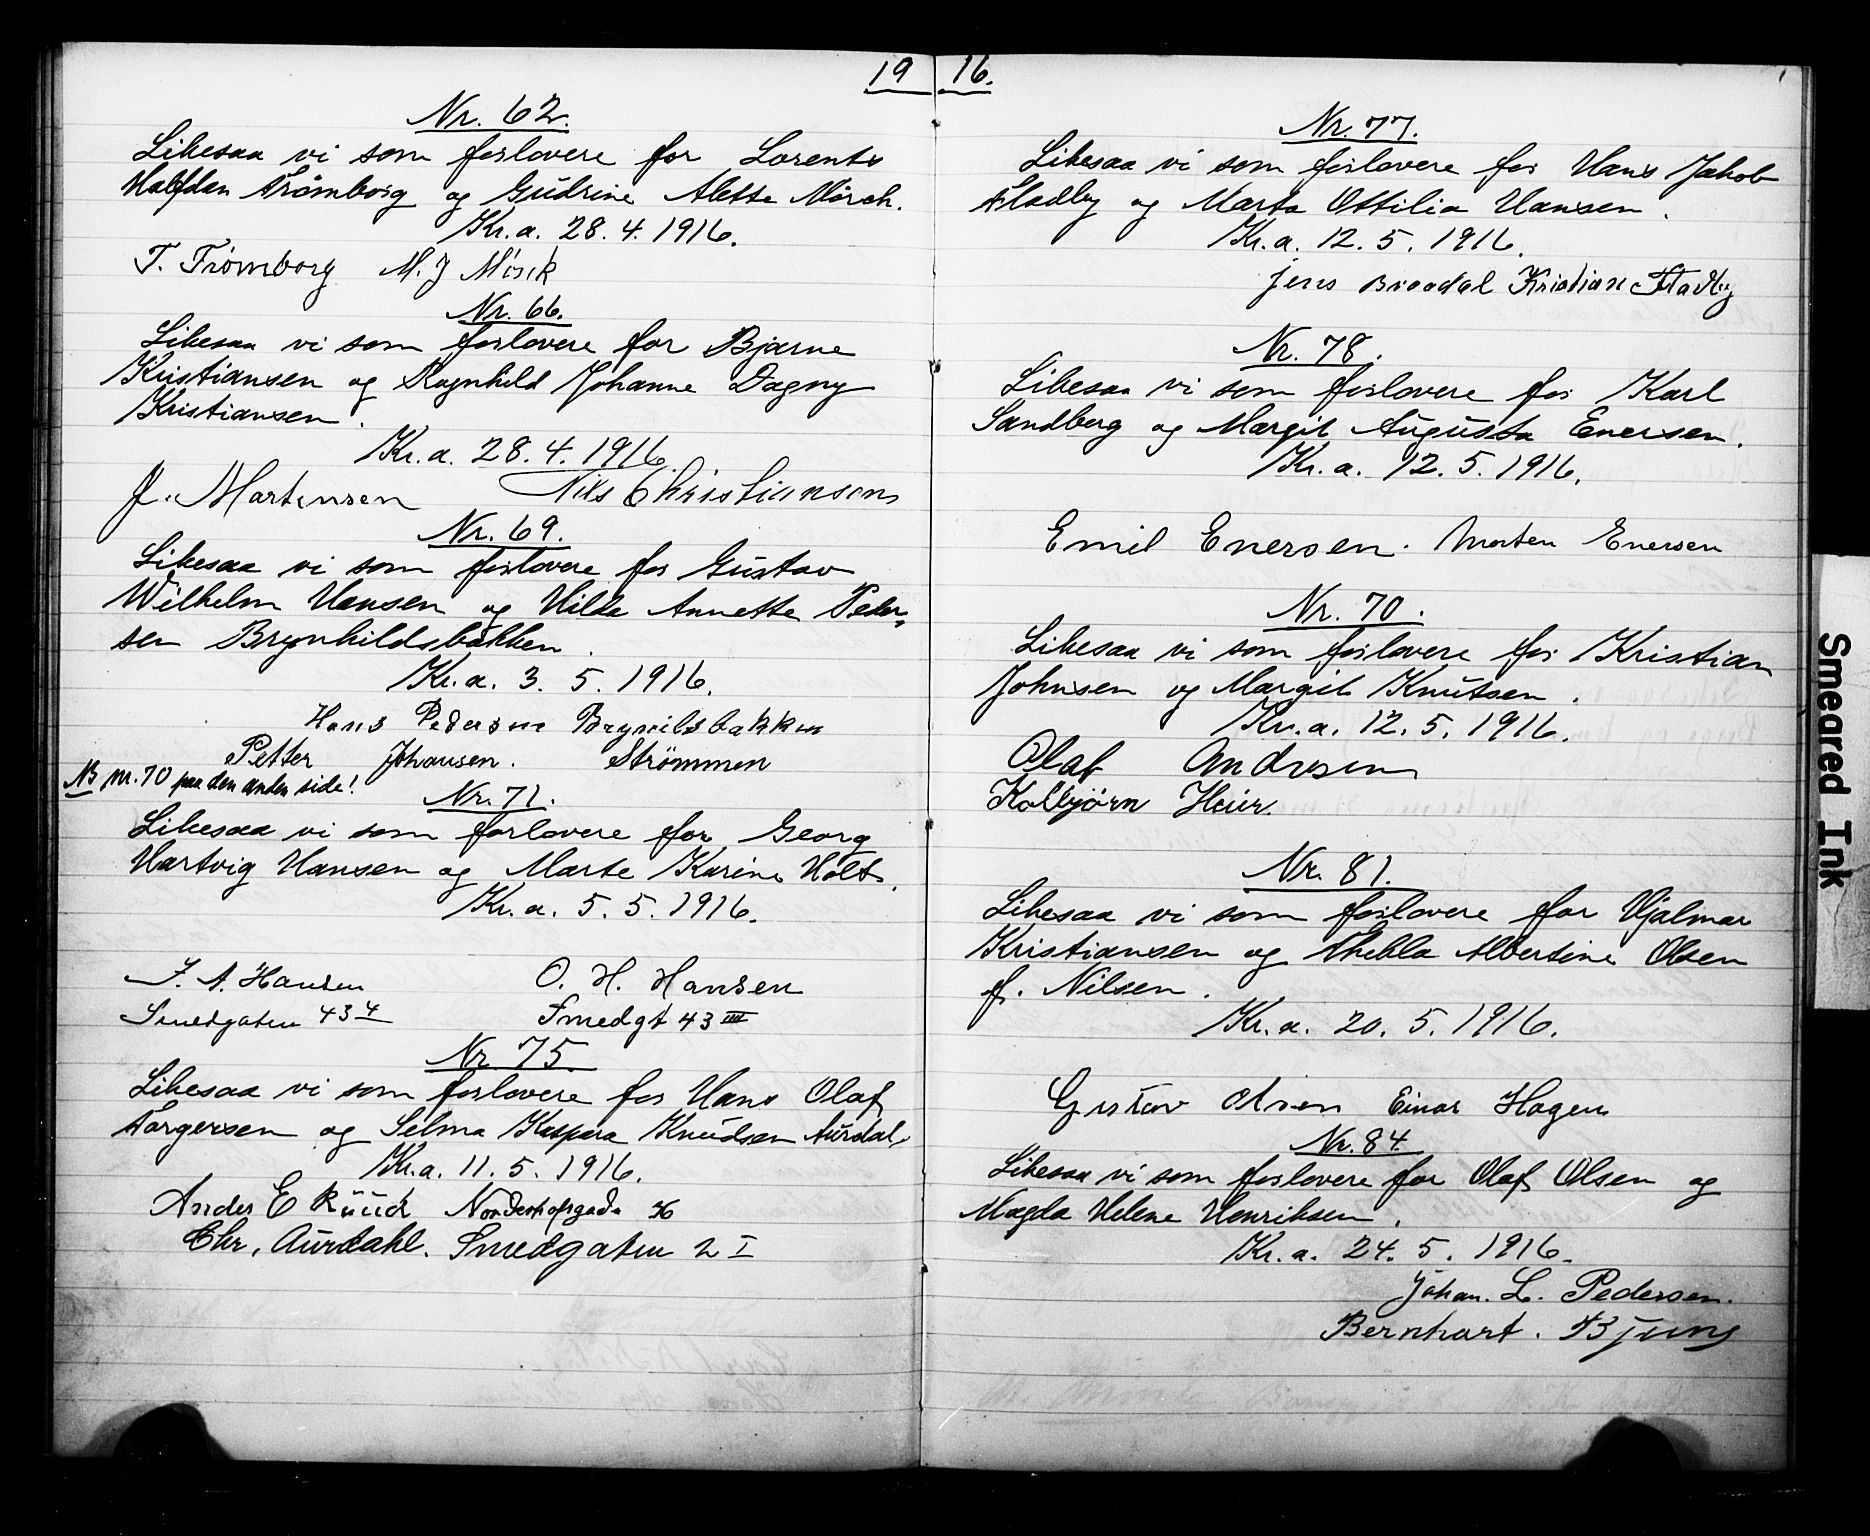 19 16.
Nr. 62.
Likesaa vi som forlovere for Lorents
Halfdan Trömborg og Gudrine Alette Mörch.
Kr.a. 28.4.1916.
T. Trömborg M. J Mörk
Nr. 66.
Likesaa vi som forlovere for Bjarne
Kristiansen og Ragnhild Johanne Dagny
Kristiansen.
Kr.a. 28.4.1916.
J. Martinsen Nils Christiansen
Nr. 69.
Likesaa vi som forlovere for Gustav
Wilhelm Hansen og Hilda Annette Peder-
sen Brynhildsbakken.
Kr.a. 3.5.1916.
Hans Pedersen Brynilsbakken
Petter Johansen. Strömmen
NB nr. 70 paa den anden side!
Nr. 71.
Likesaa vi som forlovere for Georg
Hartvig Hansen og Marte Karine Holt.
Kr.a. 5.5.1916.
J. A. Hansen O. H. Hansen
Smedgaten 43 4 Smedgt 43 IIII
Nr. 75.
Likesaa vi som forlovere for Hans Olaf
Torgersen og Selma Kaspara Knudsen Aurdal.
Kr.a. 11.5.1916.
Ander E Ruud Norderhofsgade 36
Chr. Aurdahl. Smedgaten 2 I
Nr. 77.
Likesaa vi som forlovere for Hans Jakob
Fladby og Marta Ottilia Hansen.
Kr.a. 12.5.1916.
Jens Kristian Fladby
Nr. 78.
Likesaa vi som forlovere for Karl
Sandberg og Margit Augusta Enersen.
Kr.a. 12.5.1916.
Emil Enersen. Morten Enersen
Nr. 70.
Likesaa vi som forlovere for Kristian
Johnsen og Margit Knutsen.
Kr.a. 12.5.1916.
Olaf Andresen
Kolbjörn Heier.
Nr. 81.
Likesaa vi som forlovere for Hjalmar
Kristiansen og Thekla Albertine Olsen
f. Nilsen.
Kr.a. 20.5.1916.
Gustav Olsen Einar Hagen
Nr. 84.
Likesaa vi som forlovere for Olaf Olsen og
Magda Helene Henriksen.
Kr.a. 24.5.1916.
Johan. L. Pedersen.
Bernhart. Bjung
Smeared Ink